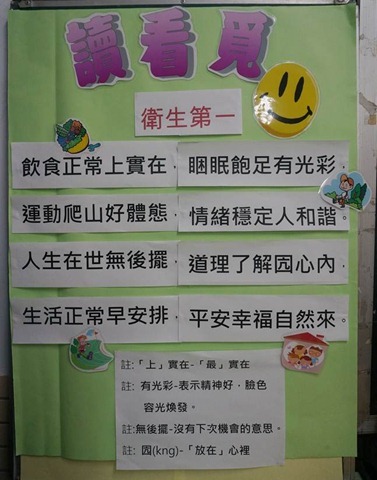 讀看覓
衛生第一
飲食正常上實在，睏眠飽足有光彩，
運動爬山好體態，情緒穩定人和諧。
人生在世無後擺，道理了解囥心內，
生活正常早安排，平安幸福自然來。
註:「上」實在-「最」實在
註: 有光彩-表示精神好，臉色
容光煥發。
註:無後擺-沒有下次機會的意思。
註: 囥(kng)-「放在」心裡